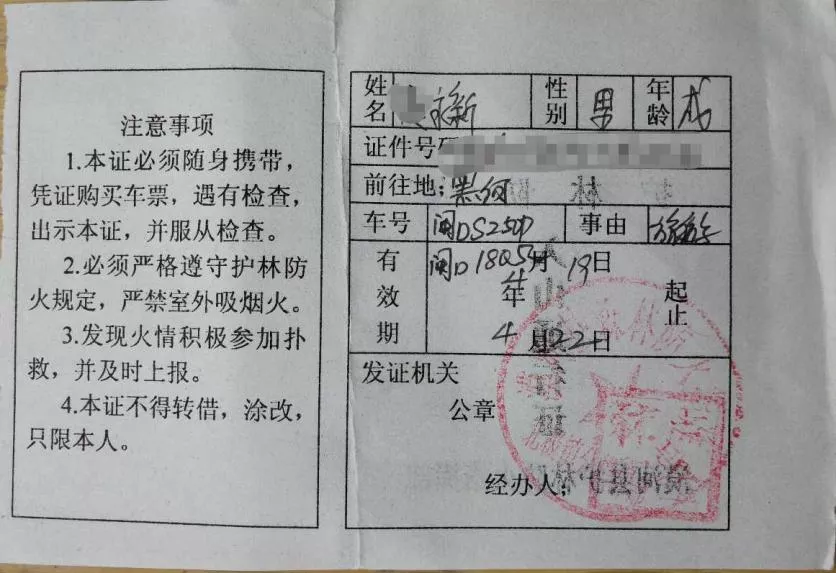 注意事项
1.本证必须随身携带，
凭证购买车票，遇有检查，
出示本证，并服从检查。
2.必须严格遵守护林防
火规定，严禁室外吸烟火。
3.发现火情积极参加扑
救，并及时上报。
4.本证不得转借，涂改，
只限本人。
姓名 新 性别 男 年龄 成
证件号码
前往地：黑河
车号 闽DS250D 事由 旅游
有效期 闽D1805 月19日 起
年 止
4月22日
发证机关
公章
经办人：